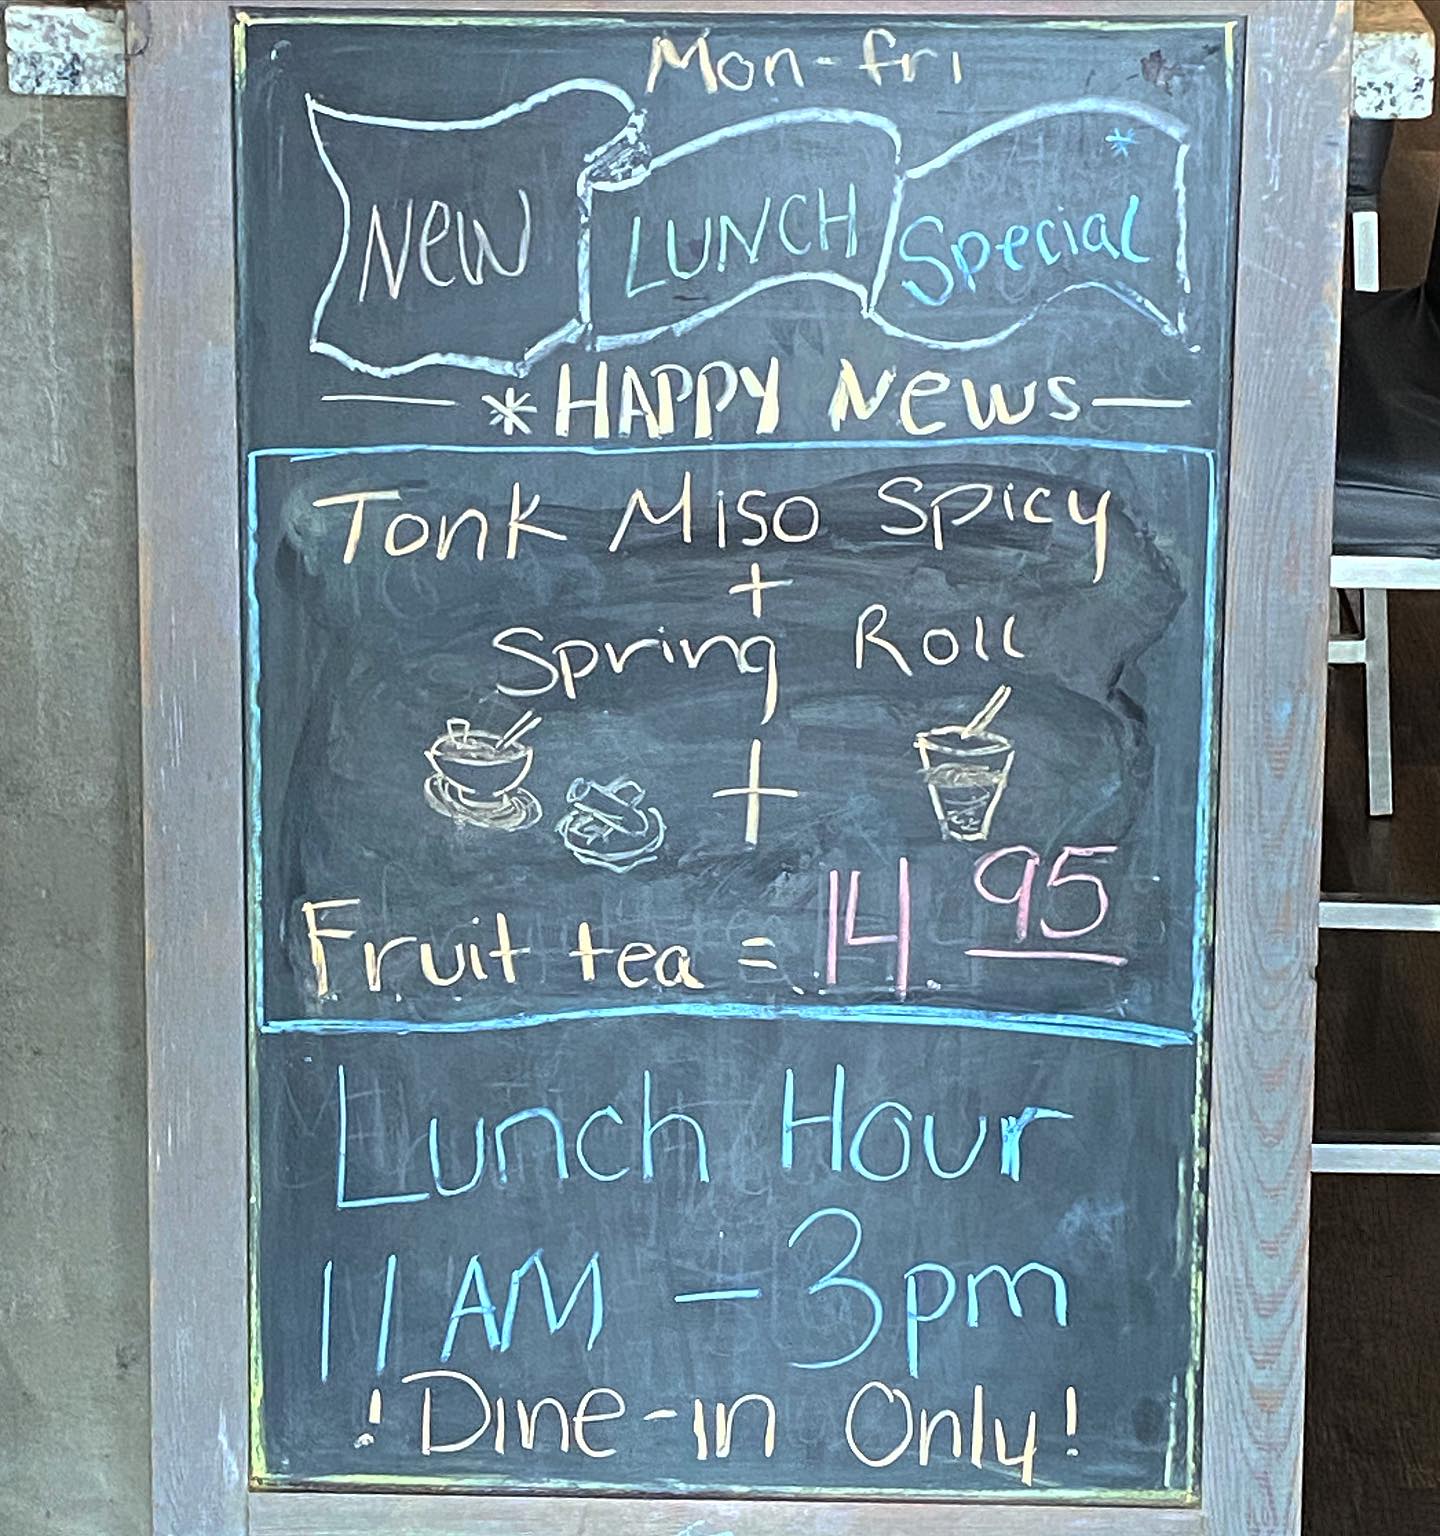 Mon-fri
New LUNCH Special
*HAPPY News
Tonk Miso Spicy
+
Spring Roll
+
Fruit tea = 14.95
Lunch Hour
11AM - 3pm
! Dine-in Only!